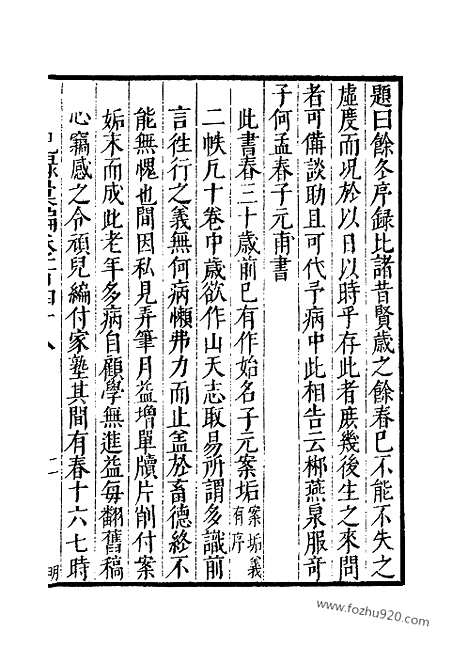 題曰餘冬序録比諸昔賢歲之餘春已不能不失之
虛度而況於以日以時乎存此者庶幾後生之來問
者可備談助且可代予病中此相告云郴燕泉服竒
子何孟春子元甫書
此書春三十歲前已有作始名子元案垢案垢義有序
二帙凡十卷中歲欲作山天志取易所謂多識前
言徃行之義無何病懶弗力而止盖於畜德終不
能無愧也間因私見弄筆月益增單牘片削付案
垢末而成此老年多病自顧學無進益毎翻舊稿
心竊感之令頑兒編付家塾其間有春十六七時
明
www.fozhu920.com